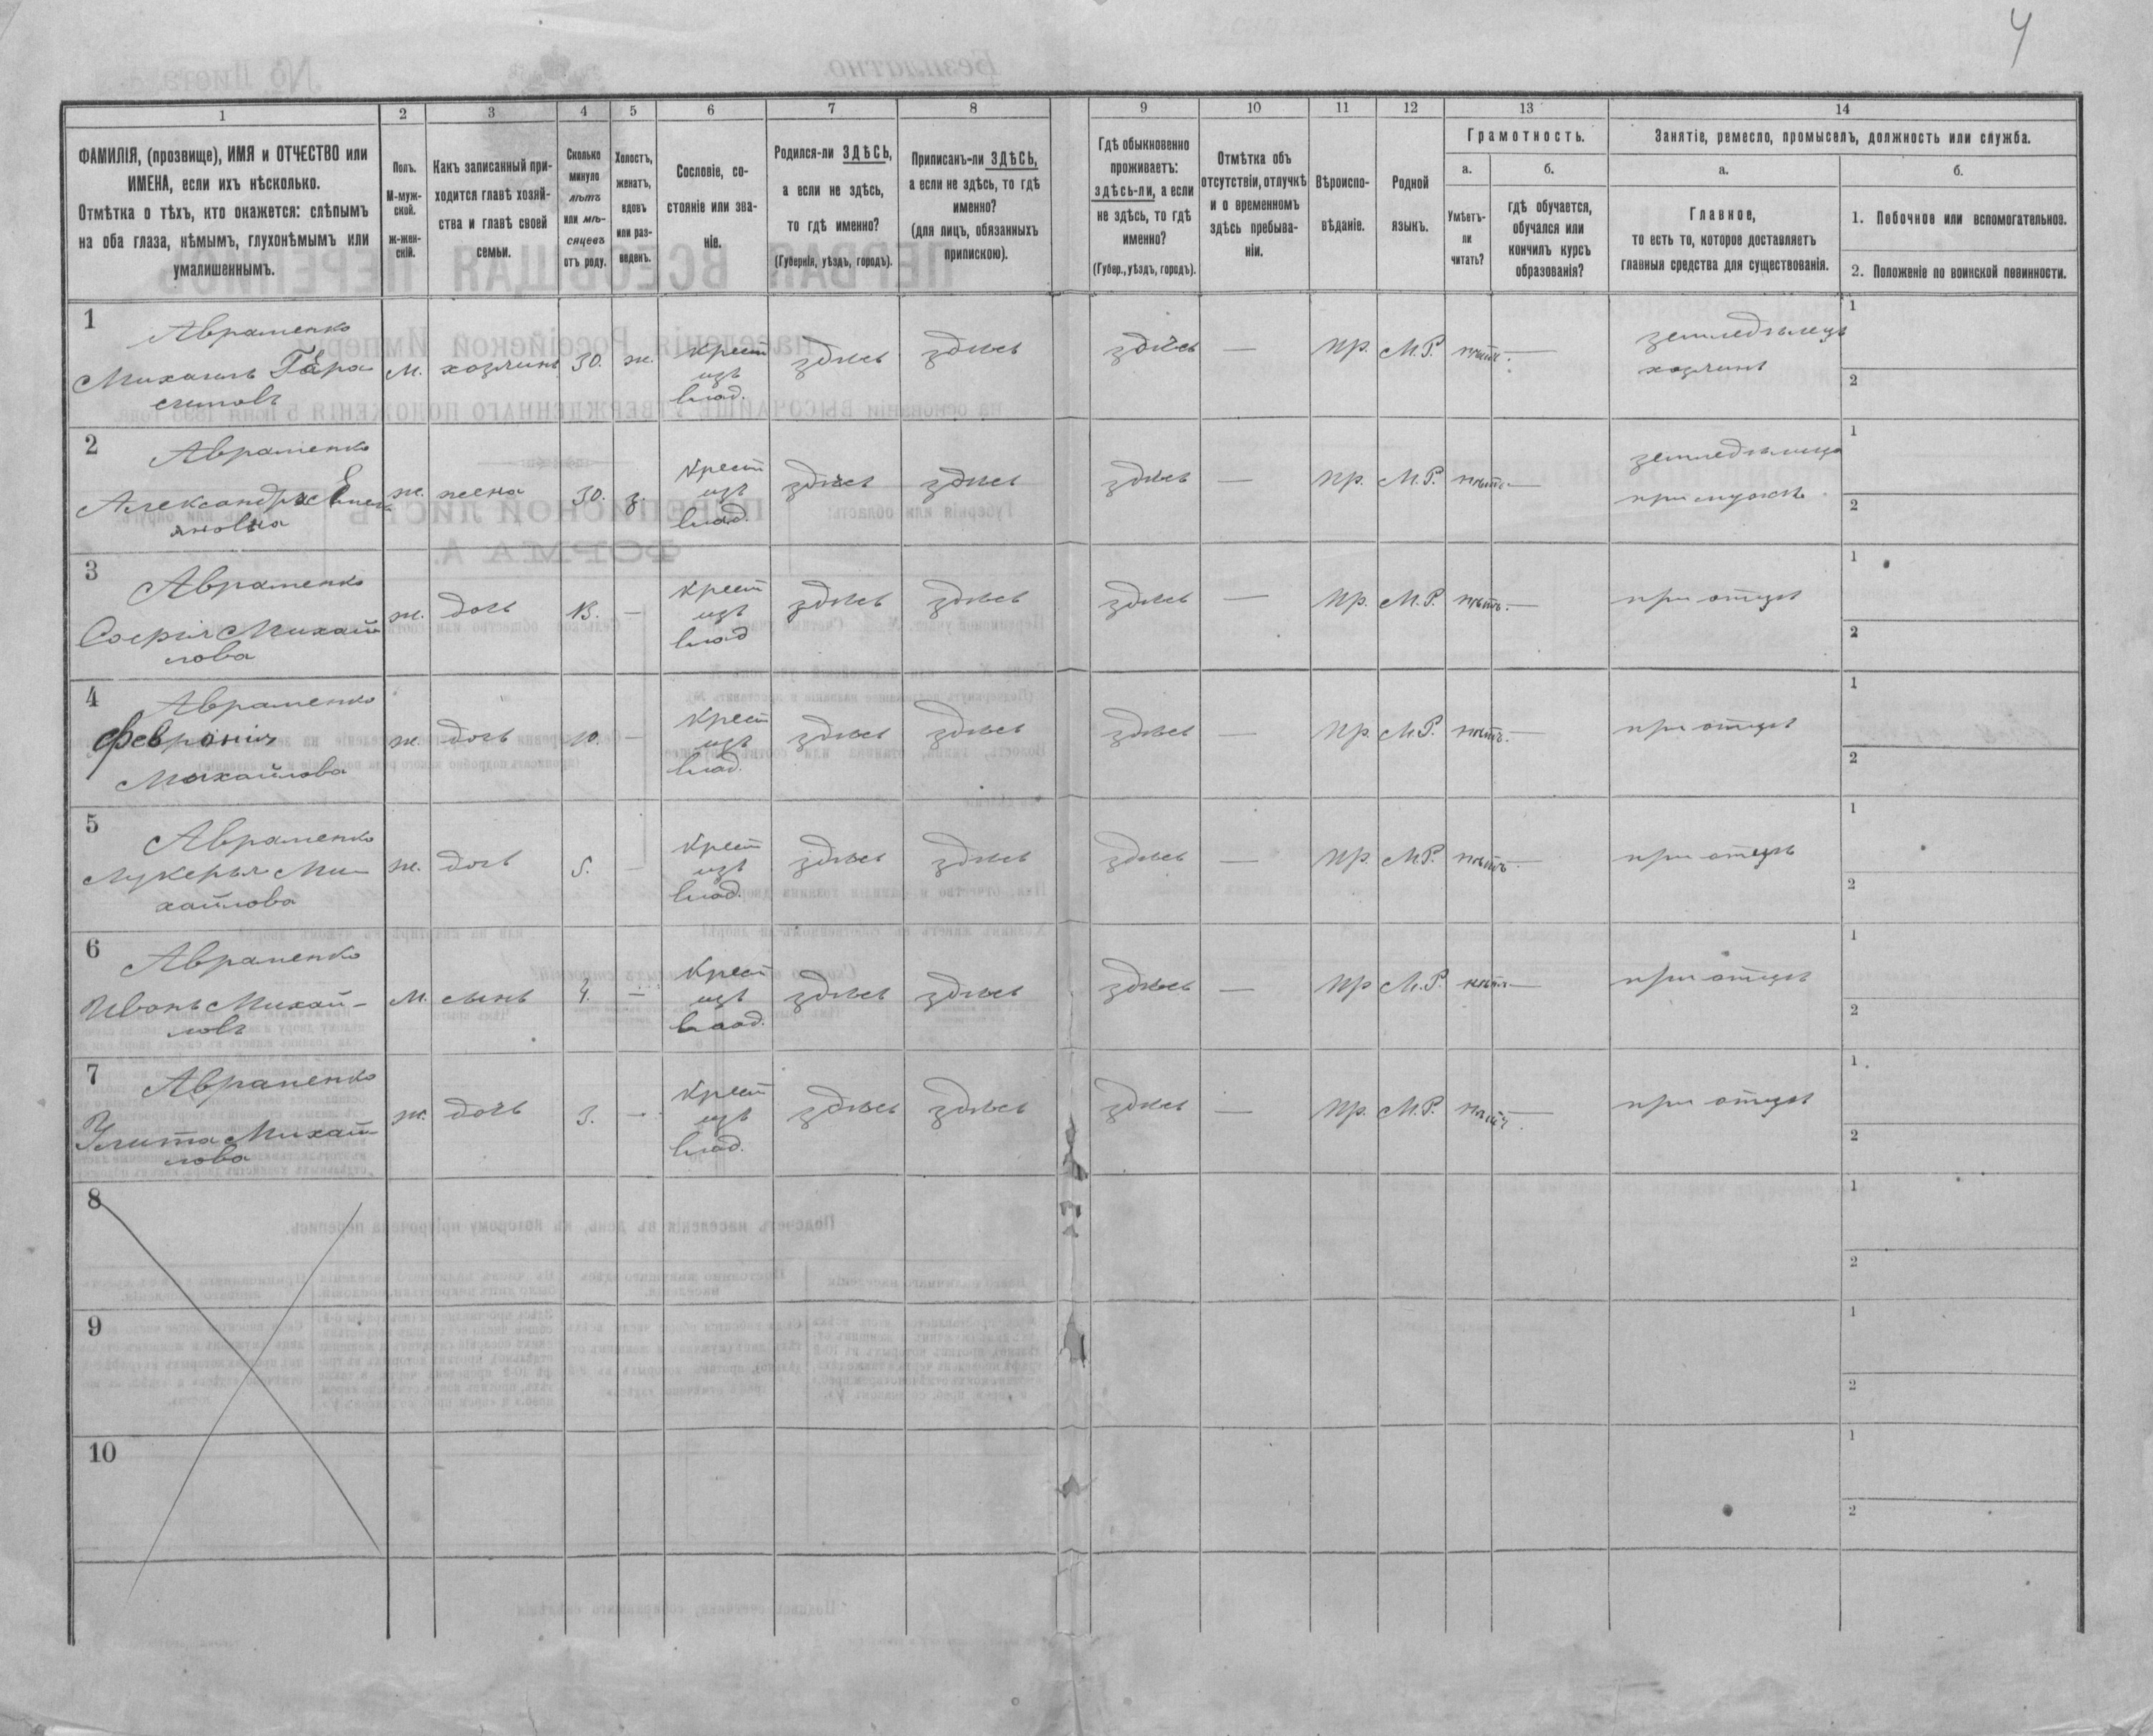 4
1
2
3
4
5
6
7
8
9
10
11
12
13
14
ФАМИЛІЯ, (прозвище), ИМЯ и ОТЧЕСТВО или
ИМЕНА, если ихъ нѣсколько.
Отмѣтка о тѣхъ, кто окажется: слѣпымъ
на оба глаза, нѣмымъ, глухонѣмымъ или
умалишеннымъ.
Полъ.
М-муж-
ской.
ж-жен-
скій.
Какъ записанный при-
ходится главѣ хозяй-
ства и главѣ своей
семьи.
Сколько
минуло
лѣтъ
или мѣ-
сяцевъ
отъ роду.
Холостъ,
женатъ,
вдовъ
или раз-
веденъ.
Сословіе, со-
стояніе или зва-
ніе.
Родился-ли ЗДѢСЬ,
а если не здѣсь,
то гдѣ именно?
(Губернія, уѣздъ, городъ).
Приписанъ-ли ЗДѢСЬ,
а если не здѣсь, то гдѣ
именно?
(для лицъ, обязанныхъ
припискою).
Гдѣ обыкновенно
проживаетъ:
здѣсь-ли, а если
не здѣсь, то гдѣ
именно?
(Губер., уѣздъ, городъ).
Отмѣтка объ
отсутствіи, отлучкѣ
и о временномъ
здѣсь пребыва-
ніи.
Вѣроиспо-
вѣданіе.
Родной
языкъ.
Грамотность.
а.
Умѣетъ-
ли
читать?
б.
гдѣ обучается,
обучался или
кончилъ курсъ
образованія?
Занятіе, ремесло, промыселъ, должность или служба.
а.
Главное,
то есть то, которое доставляетъ
главныя средства для существованія.
б.
1. Побочное или вспомогательное.
2. Положеніе по воинской повинности.
1
Авраменко
Михаилъ Гара
симовъ
М.
хозяинъ
30.
ж.
крест
изъ
влад.
здѣсь
здѣсь
здѣсь
—
пр.
М.Р.
нѣтъ.
—
земледѣлецъ
хозяинъ
1
2
2
Авраменко
Александра Емель
яновна
ж.
жена
30.
з.
крест
изъ
влад.
здѣсь
здѣсь
здѣсь
—
пр.
М.Р.
нѣтъ.
—
земледѣлица
при мужѣ
1
2
3
Авраменко
Софія Михай
лова
ж.
дочь
13.
—
крест
изъ
влад
здѣсь
здѣсь
здѣсь
—
пр.
М.Р.
нѣтъ.
—
при отцѣ
1
2
4
Авраменко
Февронія
Михайлова
ж.
дочь
10.
—
крест
изъ
влад.
здѣсь
здѣсь
здѣсь
—
пр.
М.Р.
нѣтъ.
—
при отцѣ
1
2
5
Авраменко
Лукерья Ми-
хайлова
ж.
дочь
5.
—
крест
изъ
влад.
здѣсь
здѣсь
здѣсь
—
пр.
М.Р.
нѣтъ.
—
при отцѣ
1
2
6
Авраменко
Иванъ Михай-
ловъ
М.
сынъ
4.
—
крест
изъ
влад.
здѣсь
здѣсь
здѣсь
—
пр
М.Р.
нѣтъ
—
при отцѣ
1
2
7
Авраменко
Улита Михай
лова
ж.
дочь
3.
—
крест
изъ
влад.
здѣсь
здѣсь
здѣсь
—
пр.
М.Р.
нѣтъ.
—
при отцѣ
1
2
8
1
2
9
1
2
10
1
2